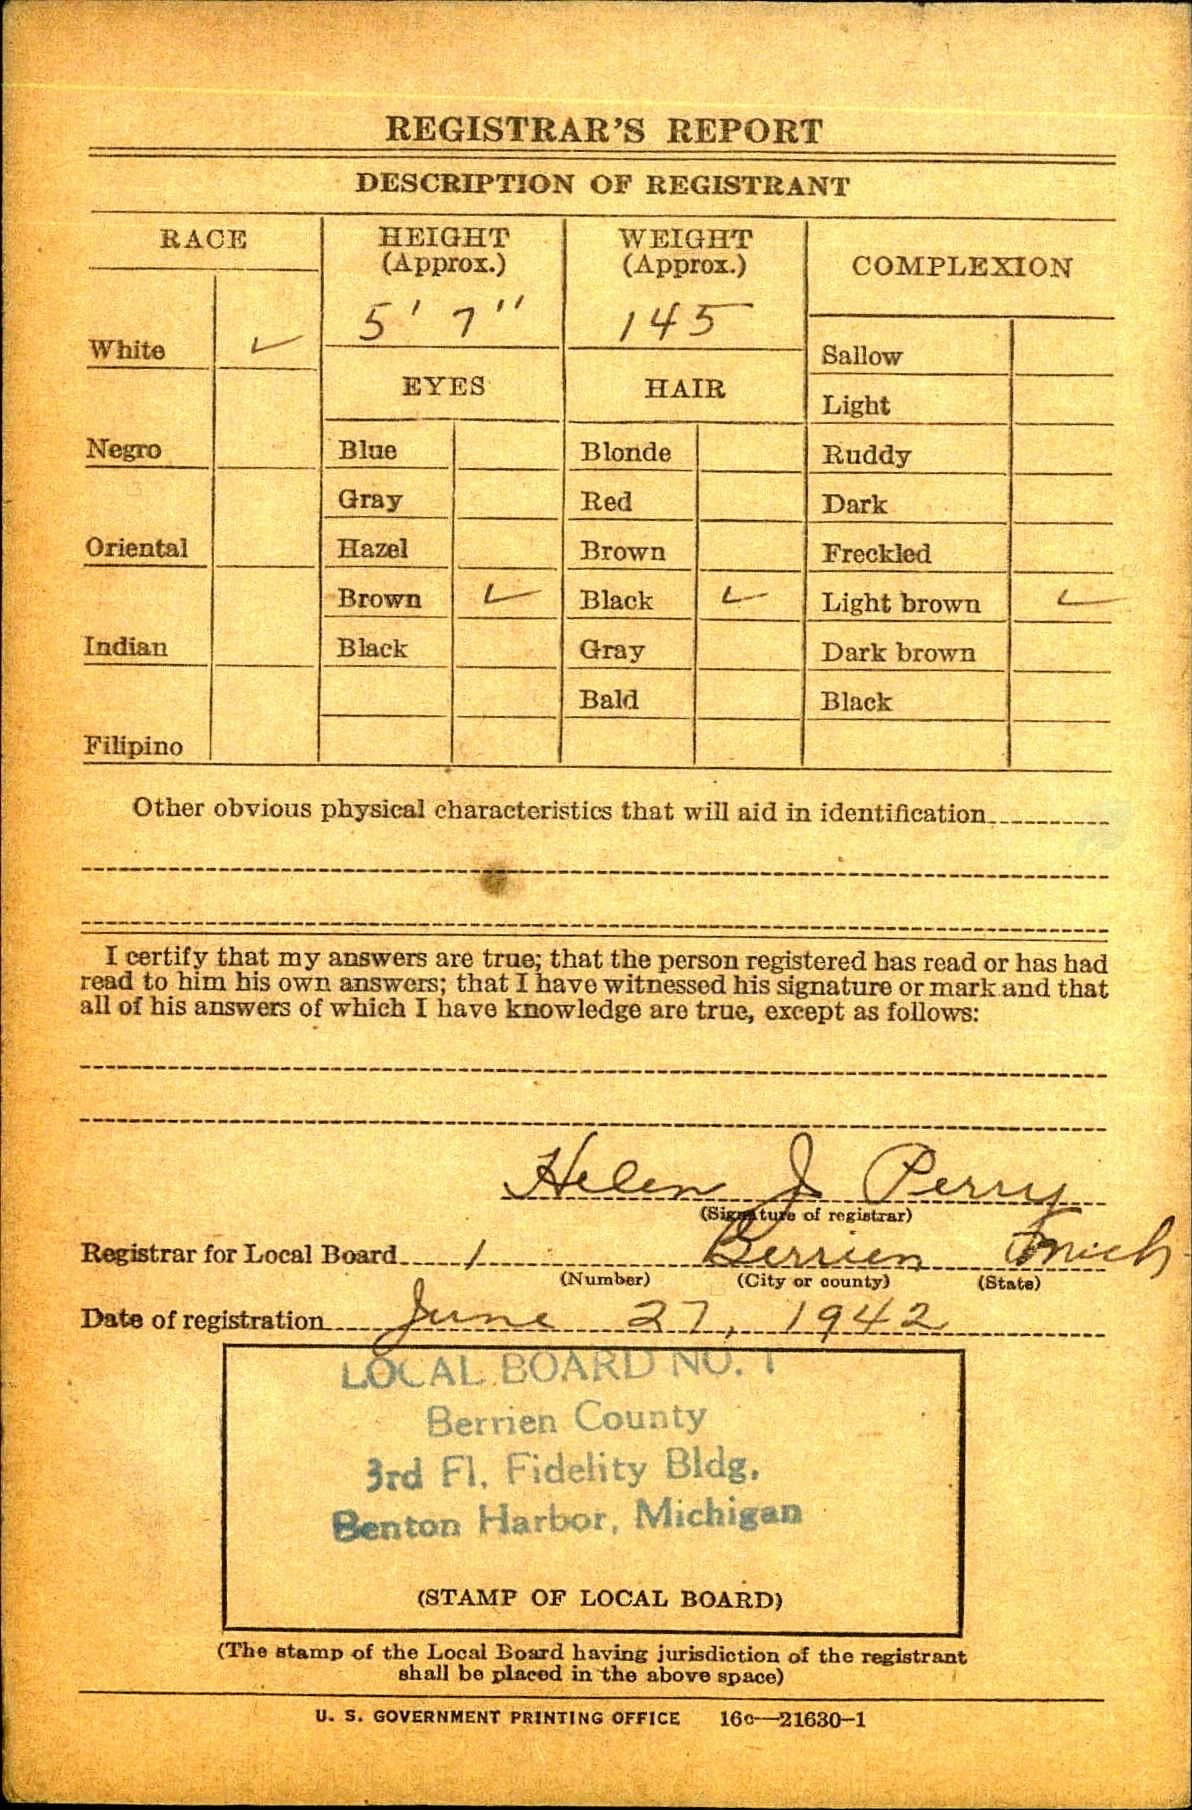 REGISTRAR'S REPORT
DESCRIPTION OF REGISTRANT
RACE
White ✓
Negro
Oriental
Indian
Filipino
HEIGHT
(Approx.)
5' 7"
WEIGHT
(Approx.)
145
EYES
Blue
Gray
Hazel
Brown ✓
Black
HAIR
Blonde
Red
Brown
Black ✓
Gray
Bald
COMPLEXION
Sallow
Light
Ruddy
Dark
Freckled
Light brown ✓
Dark brown
Black
Other obvious physical characteristics that will aid in identification
I certify that my answers are true; that the person registered has read or has had
read to him his own answers; that I have witnessed his signature or mark and that
all of his answers of which I have knowledge are true, except as follows:
Helen J Perry
(Signature of registrar)
Registrar for Local Board 1 Berrien Mich
(Number) (City or county) (State)
Date of registration June 27, 1942
LOCAL BOARD NO. 1
Berrien County
3rd Fl. Fidelity Bldg.
Benton Harbor, Michigan
(STAMP OF LOCAL BOARD)
(The stamp of the Local Board having jurisdiction of the registrant
shall be placed in the above space)
U. S. GOVERNMENT PRINTING OFFICE 16c—21630-1